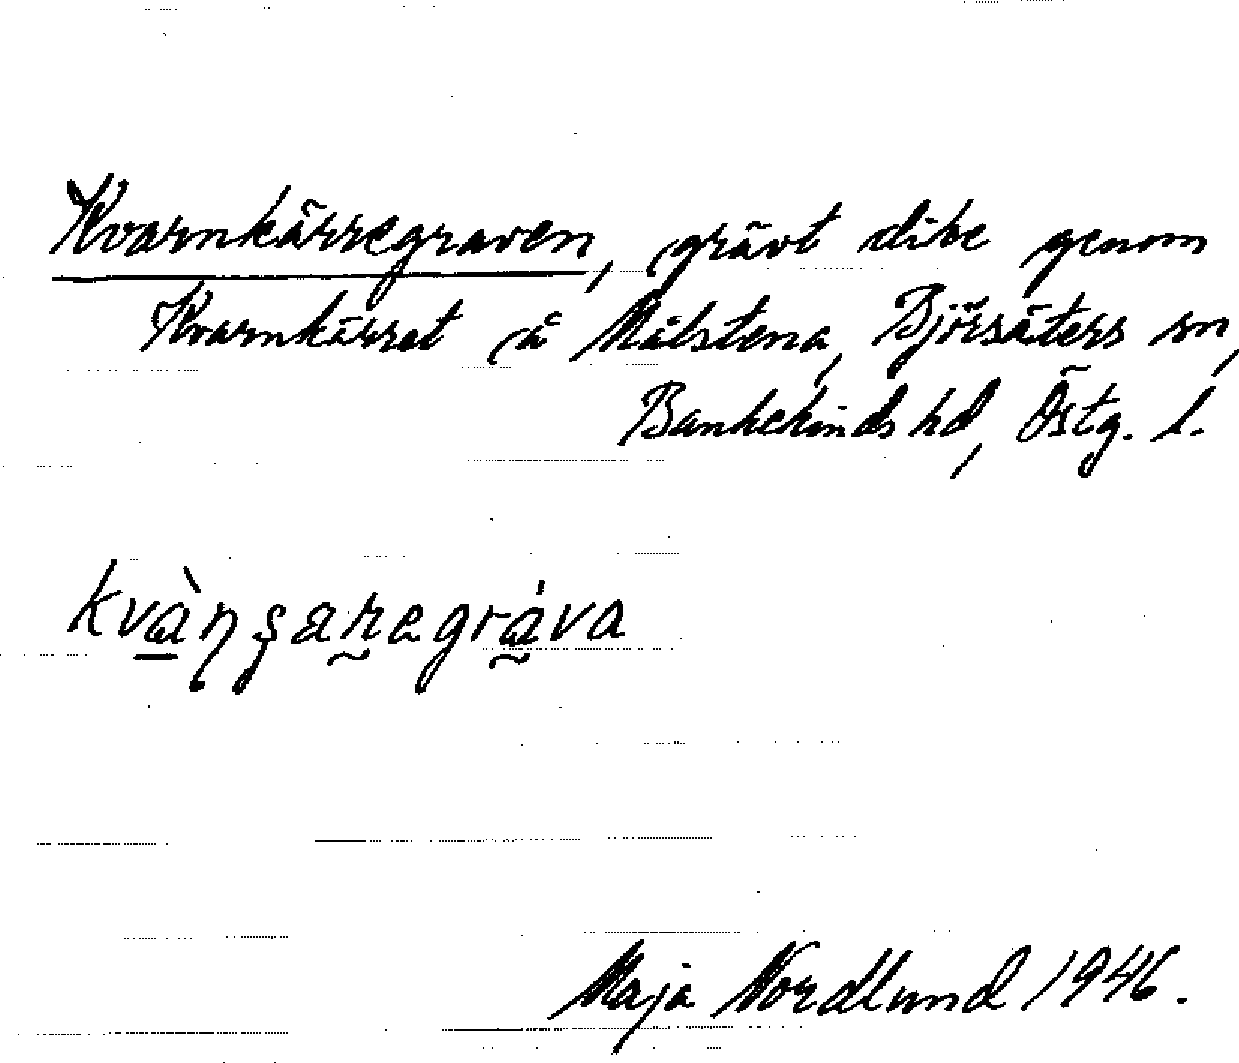 Kvarnkärregraven, grävt dike genom
Kvarnkärret å Målstena, Björsäters sn,
Bankekinds hd, Östg. l.
kvàṇʂaregráva
Maja Nordlund 1946.